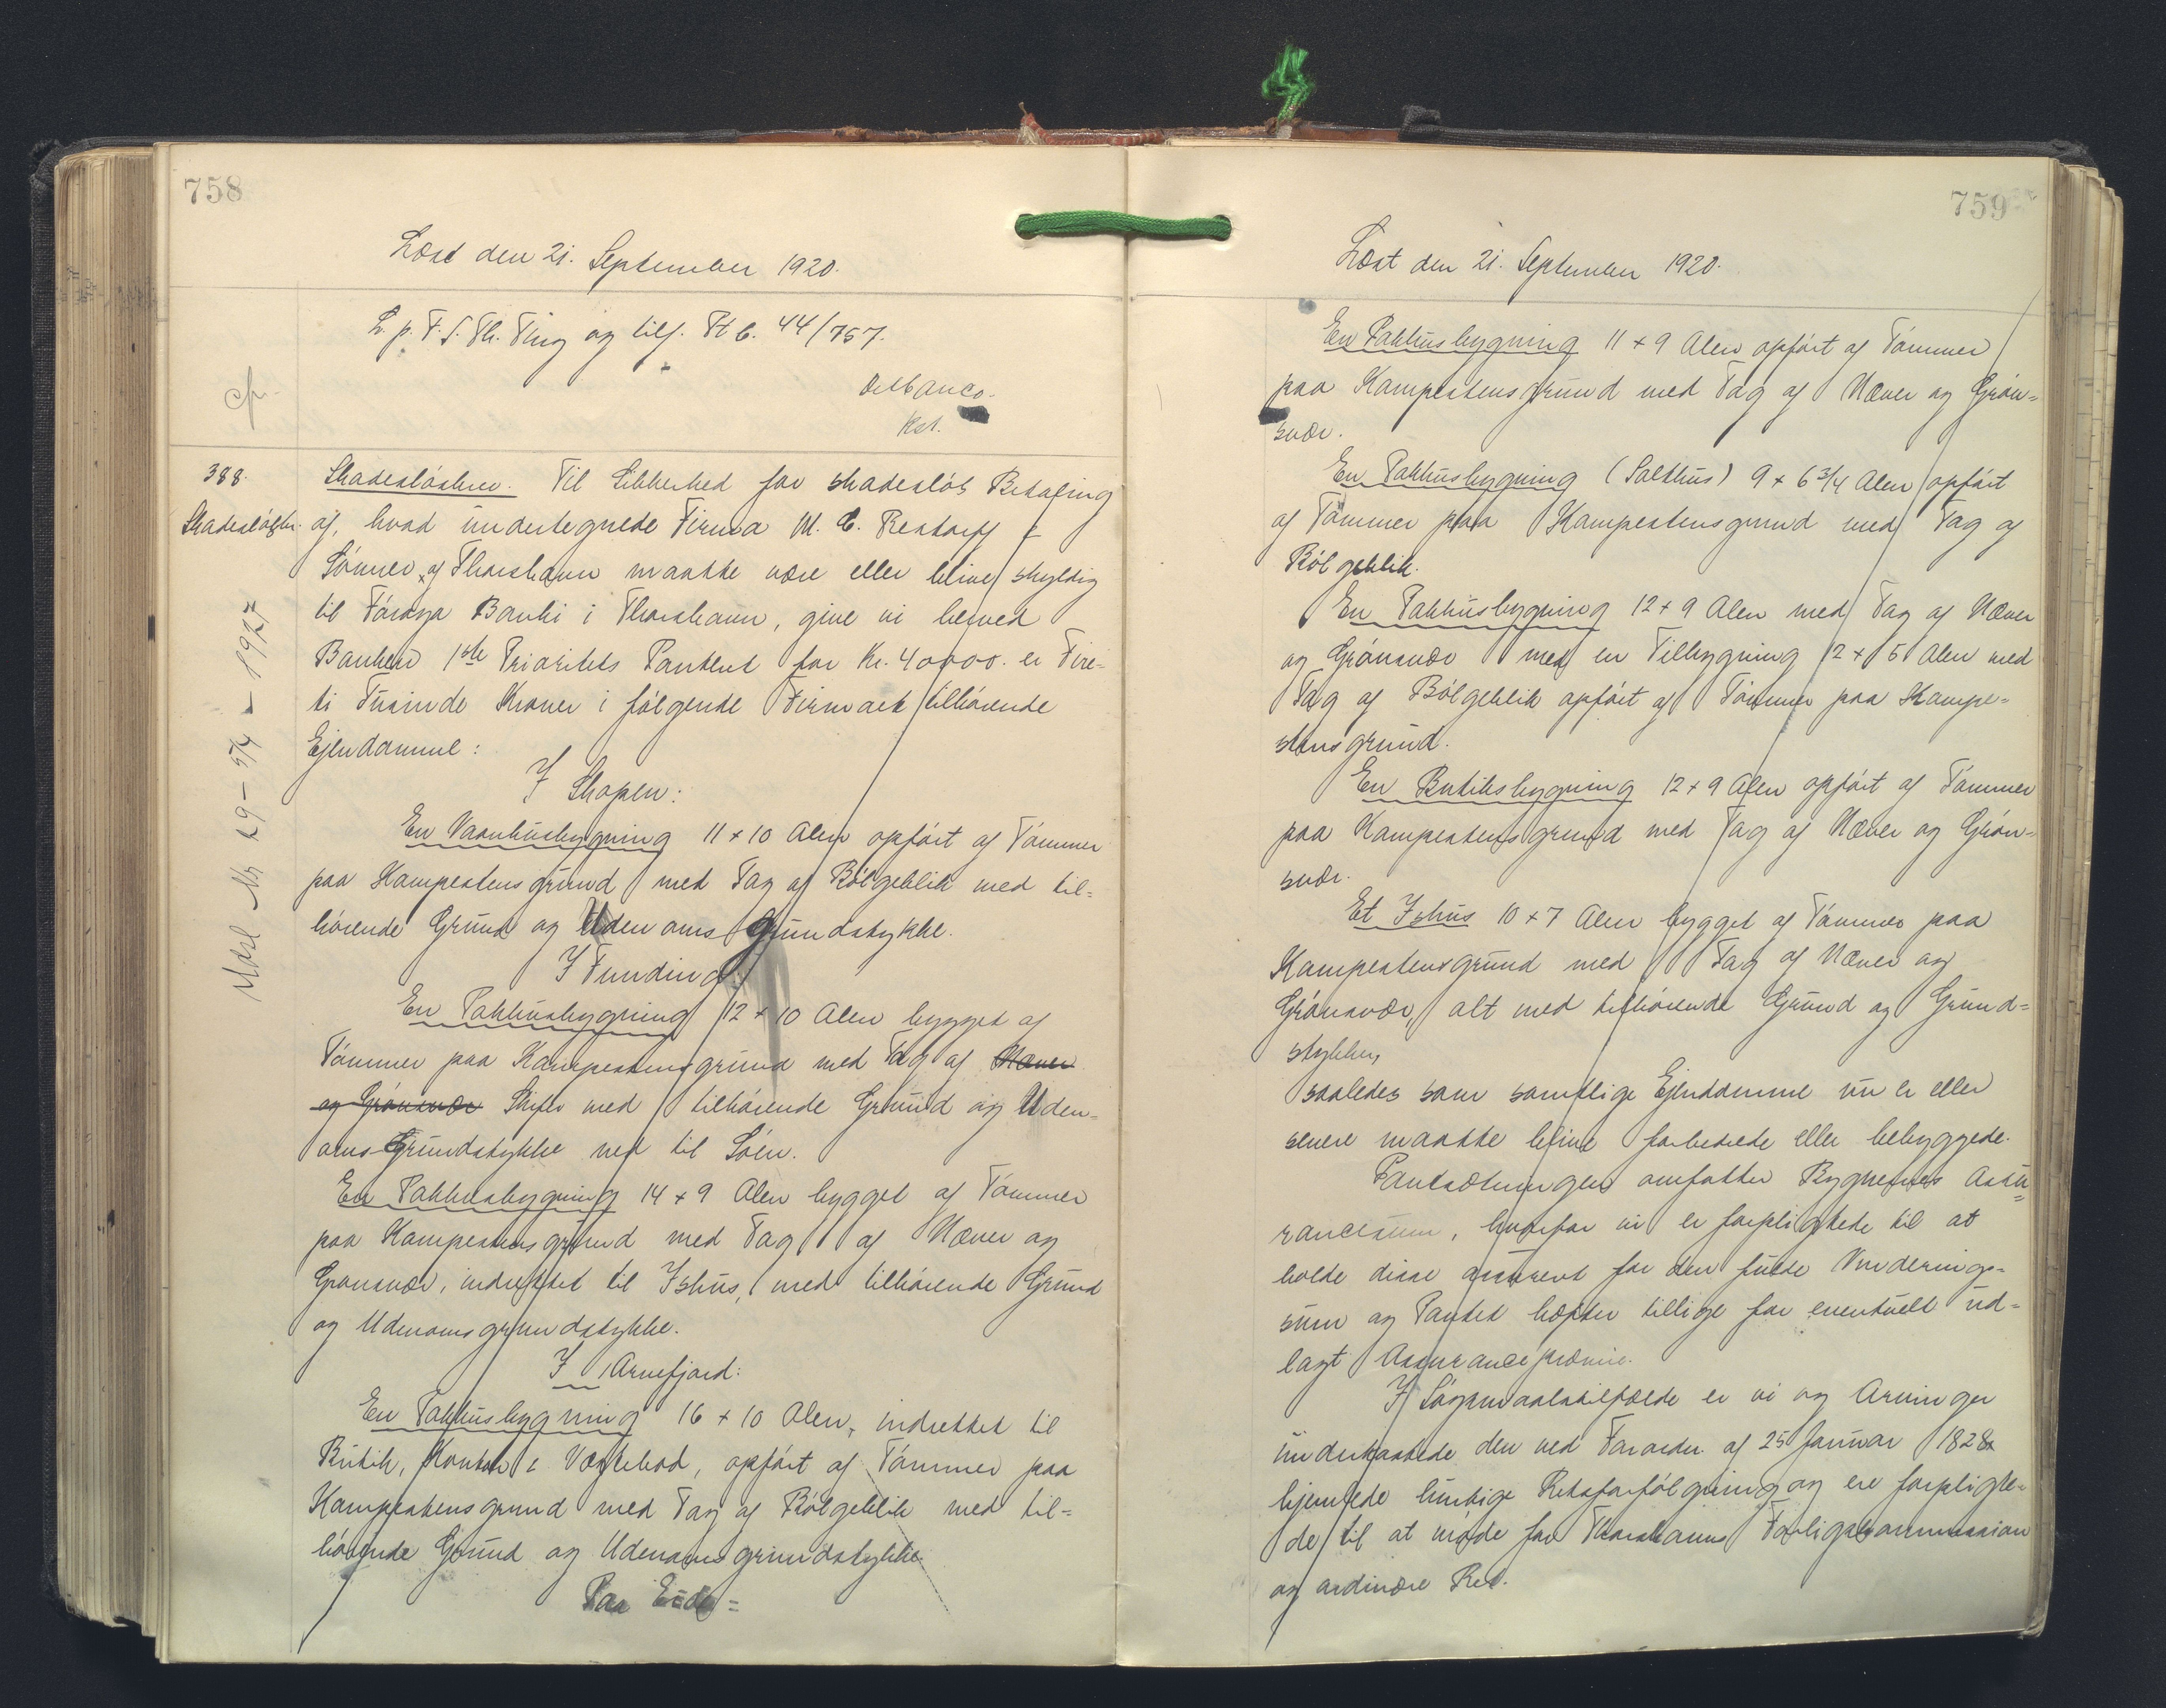 758
Læst den 21. September 1920.
L. p. F. S. Th. Ting og tilf. Ptb. 44/757.
Delbanco.
Kst.
cfr.
388.
Skadesløsbr.
Udsl Nr 29 – 5/4 – 1927
Skadesløsbrev. Til Sikkerhed for skadesløs Betaling
af, hvad undertegnede Firma M. C. Restorff &
Sønner af Thorshavn maatte være eller blive skyldig
til Føroya Banki i Thorshavn, give vi herved
Banken 1ste Prioritets Panteret for Kr. 40000. er Fire-
ti Tusinde Kroner i følgende Firmaet tilhørende
Ejendomme:
I Skopen:
En Vaanhusbygning 11 + 10 Alen opført af Tømmer
paa Kampestensgrund med Tag af Bølgeblik med til-
hørende Grund og Udenoms Grundstykke.
I Funding:
En Pakhusbygning 12 + 10 Alen bygget af
Tømmer paa Kampestensgrund med Tag af Næver
og Grønsvær Skifer med tilhørende Grund og Uden-
oms Grundstykke ned til Søen.
En Pakhusbygning 14 + 9 Alen bygget af Tømmer
paa Kampestensgrund med Tag af Næver og
Grønsvær, indrettet til Ishus, med tilhørende Grund
og Udenomsgrundstykke.
I Arnefjord:
En Pakhusbygning 16 + 10 Alen, indrettet til
Butik, Kontor & Vægtebod, opført af Tømmer paa
Kampestensgrund med Tag af Bølgeblik med til-
hørende Grund og Udenomsgrundstykke
Paa Eide =
759
Læst den 21. September 1920.
En Pakhusbygning 11 + 9 Alen opført af Tømmer
paa Kampestensgrund med Tag af Næver og Grøn-
svær.
En Pakhusbygning (Salthus) 9 + 6 3/4 Alen opført
af Tømmer paa Kampestensgrund med Tag af
Bølgeblik.
En Pakhusbygning 12 + 9 Alen med Tag af Næver
og Grønsvær med en Tilbygning 12 + 5 Alen med
Tag af Bølgeblik opført af Tømmer paa Kampe-
stensgrund.
En Butiksbygning 12 + 9 Alen opført af Tømmer
paa Kampestensgrund med Tag af Næver og Grøn-
svær.
Et Ishus 10 + 7 Alen bygget af Tømmer paa
Kampestensgrund med Tag af Næver og
Grønsvær, alt med tilhørende Grund og Grund-
stykker,
saaledes som samtlige Ejendomme nu er eller
senere maatte blive forbedrede eller bebyggede.
Pantsætningen omfatter Bygnernes Assu-
rancesum, hvorfor vi er forpligtede til at
holde disse assureret for den fulde Vurderings-
sum og Pantet hæfter tillige for eventuelt ud-
lagt Assurancepræmie.
I Søgsmaalstilfælde er vi og Arvinger
underkastede den ved Forordn. af 25 Januar 1828
hjemlede hurtige Retsforfølgning og ere forpligte-
de til at møde for Thorshavns Forligskommission
og ordinære Ret.